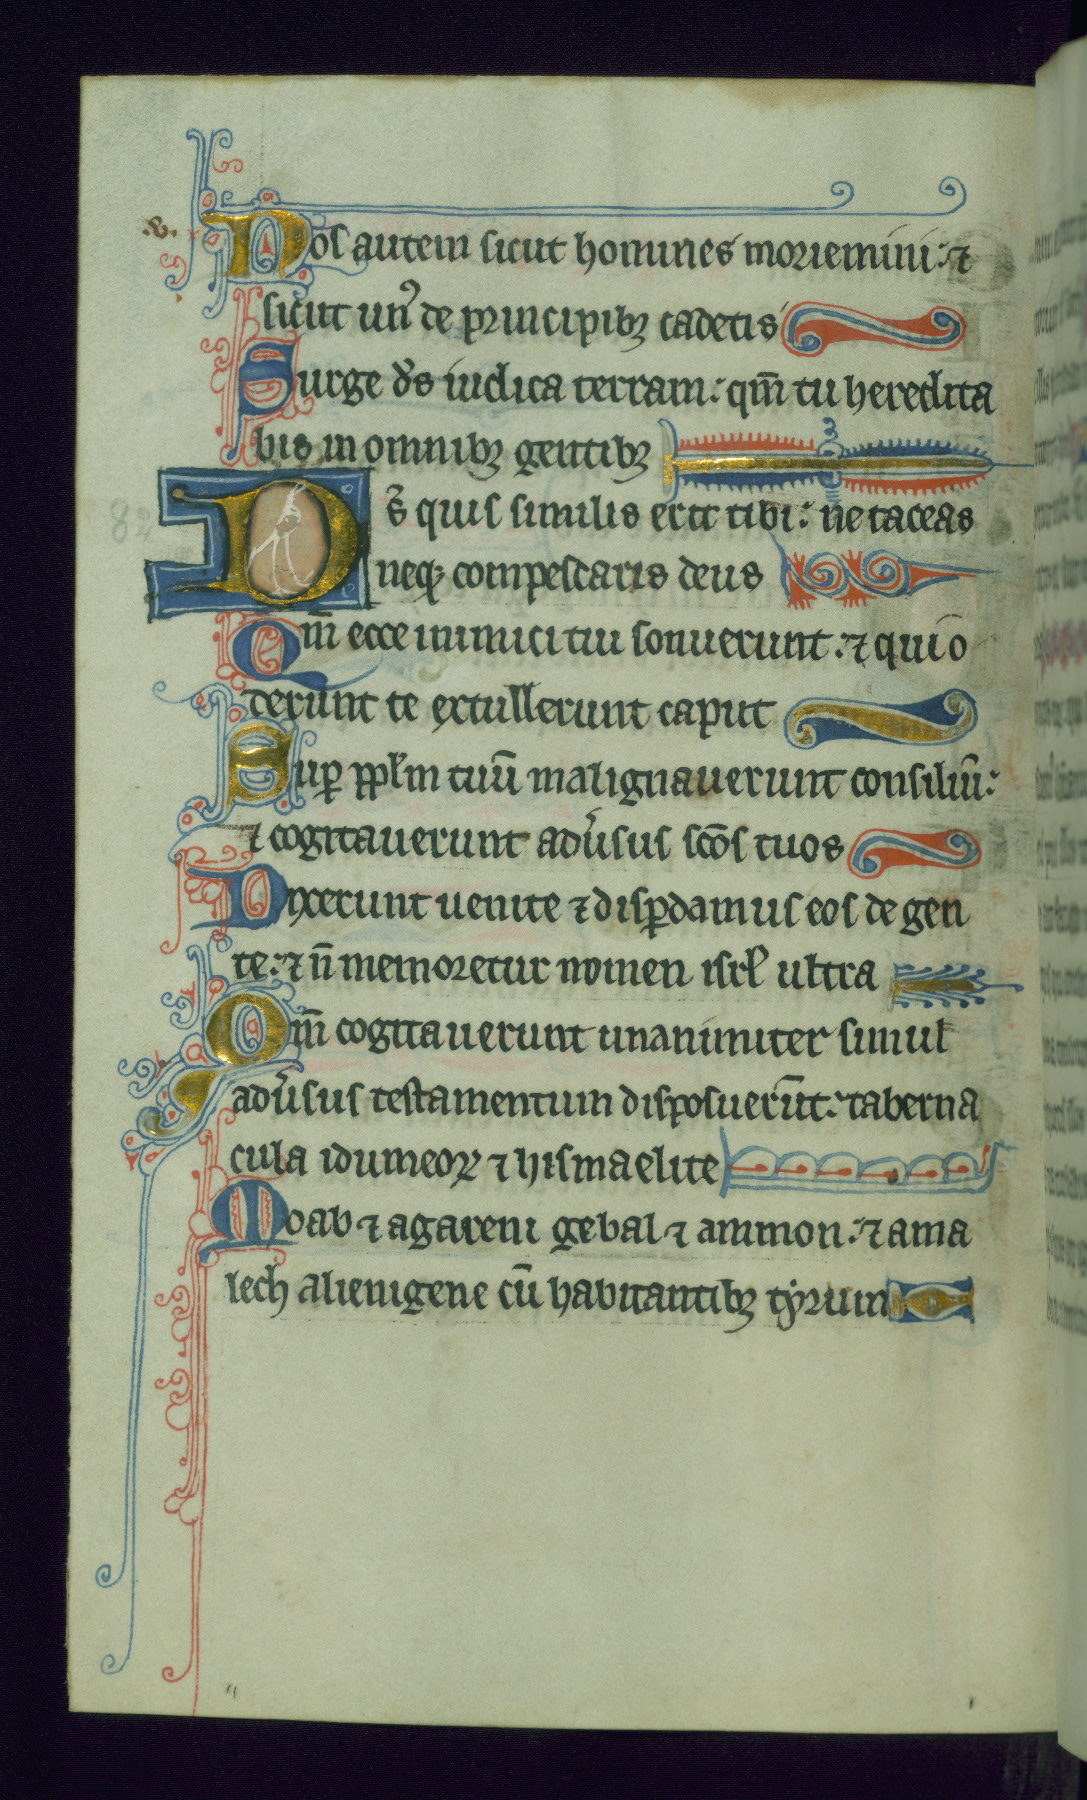 .v.
Vos autem sicut homines moriemini: ⁊
sicut un᾿ de principibꝫ cadetis
Surge d̅s iudica terram: qm̅ tu heredita
bis in omnibꝫ gentibꝫ
82
D̅s quis similis erit tibi: ne taceas
neqꝫ compescaris deus
Qm̅ ecce inimici tui sonuerunt: ⁊ qui o
derunt te extullerunt caput
Suꝑ ppl̅m tuu̅ malignauerunt consiliu̅:
⁊ cogitauerunt adu̓sus sc̅os tuos
Dixerunt uenite ⁊ disꝑdamus eos de gen
te: ⁊ n̅ memoretur nomen isrl̅ ultra
Qm̅ cogitauerunt unanimiter simul
adu̓sus testamentum disposueru̅t: taberna
cula idumeoꝝ ⁊ hismaelite
Moab ⁊ agareni gebal ⁊ ammon: ⁊ ama
lech alienigene cu̅ habitantibꝫ tyrum